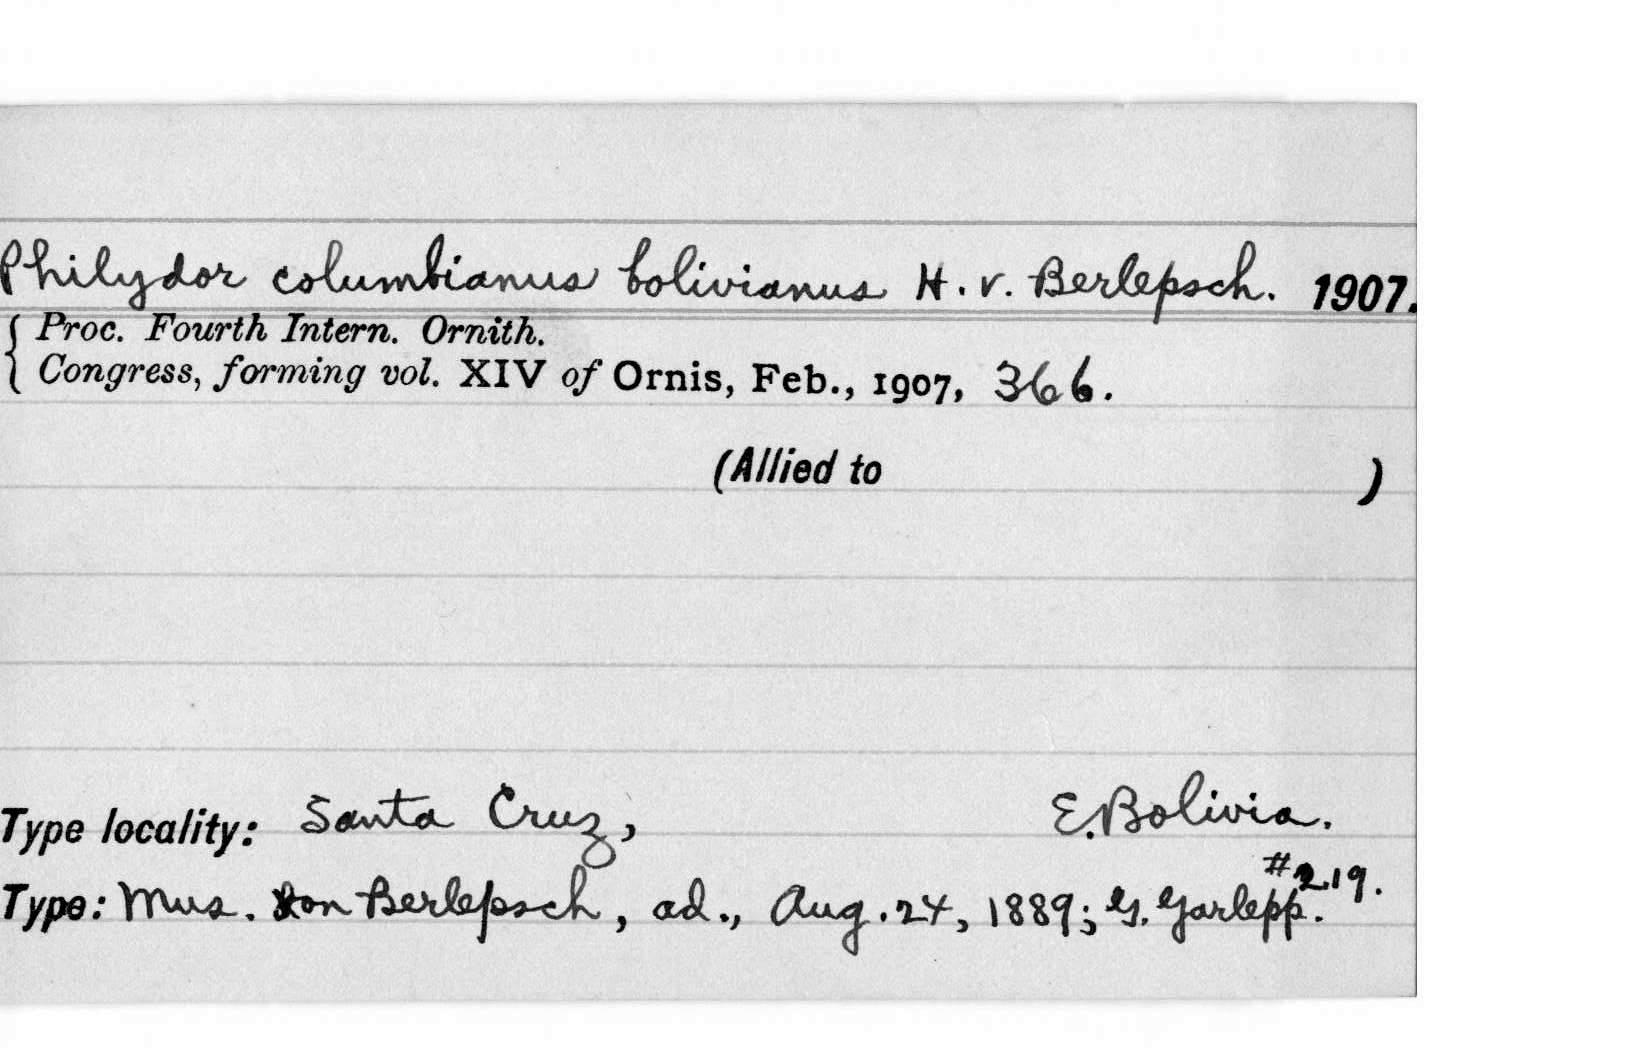 Philydor columbianus bolivianus H. v. Berlepsch. 1907.
Proc. Fourth Intern. Ornith.
Congress, forming vol. XIV of Ornis, Feb., 1907, 366.
(Allied to )
Type locality: Santa Cruz, E. Bolivia.
#219.
Type: Mus. von Berlepsch, ad., Aug. 24, 1889; G. Garlepp.